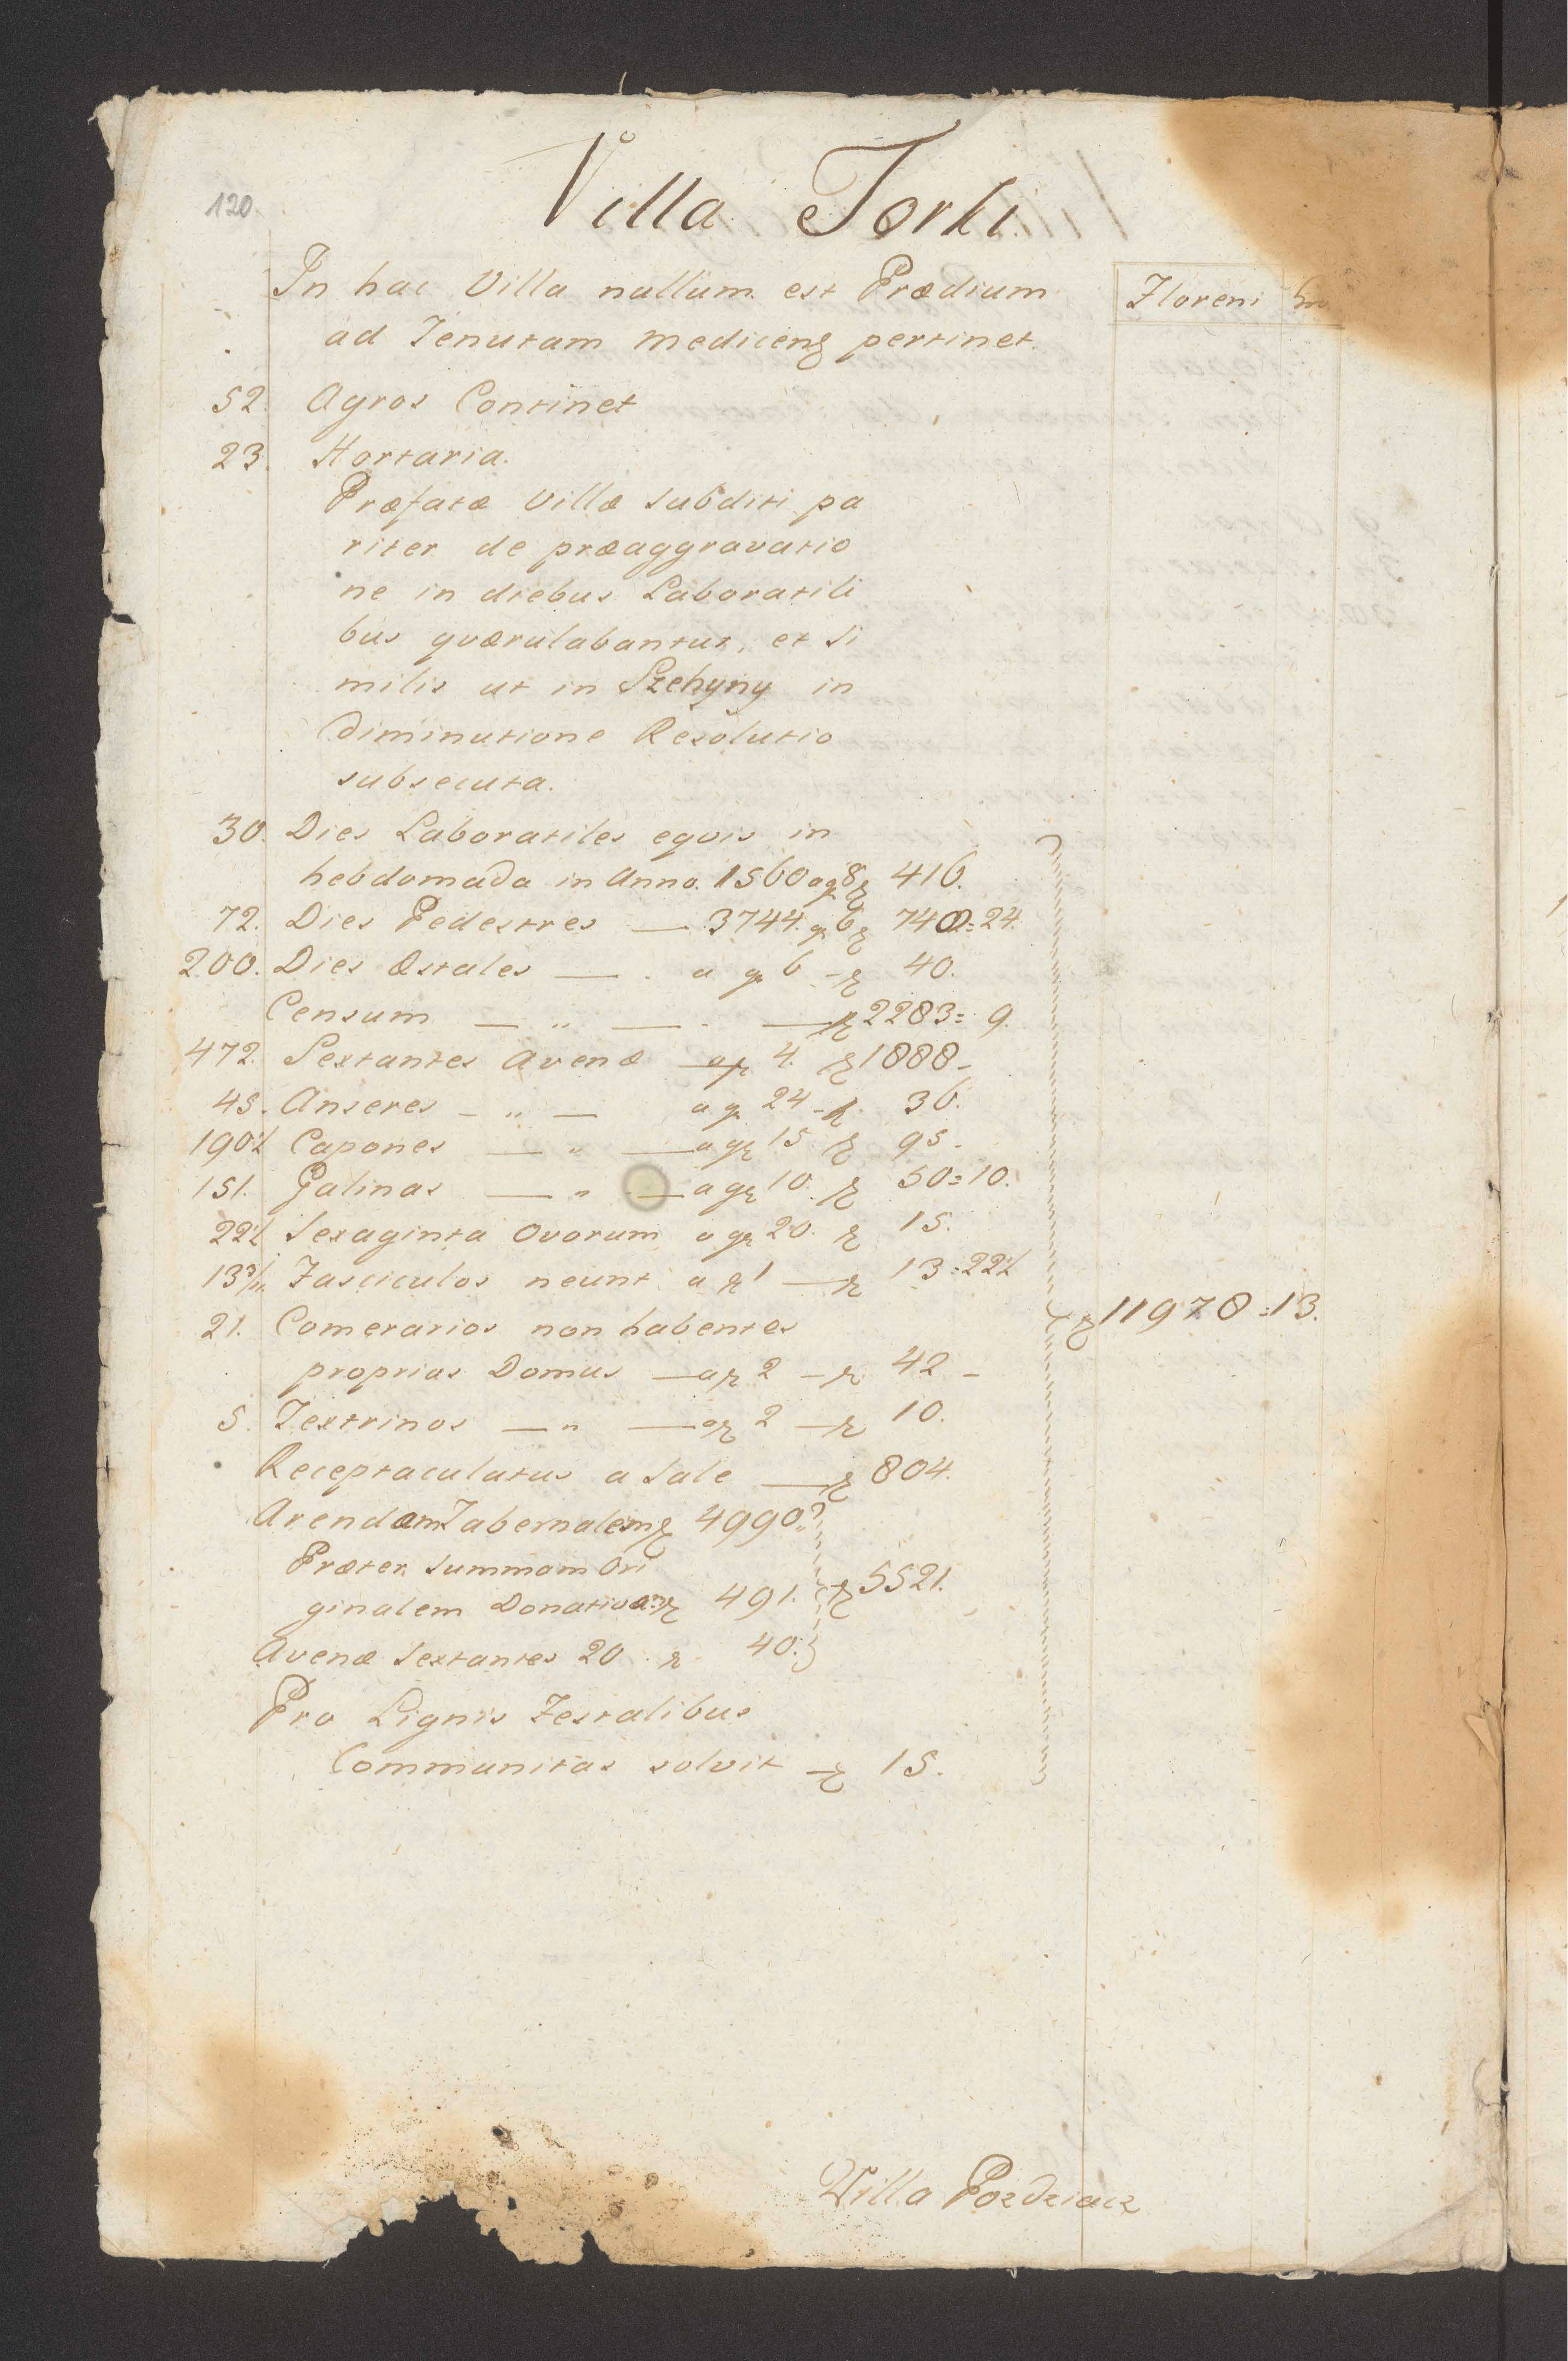 120.
Villa Torki.
In hac Villa nullum est Prædium
ad Tenutam Medicens pertinet.
Floreni
52. Agros Continet
23. Hortaria.
Præfatæ Villæ subditi pa
riter de præaggravatio
ne in diebus Laboratili
bus quærulabantur, et si
milis ut in Szehyny in
Diminutione Resolutio
subsecuta.
30. Dies Laboratiles equis in
hebdomada in Anno. 1560 a gr 8 f 416.
72. Dies Pedestres — 3744. gr 6 f 748=24.
200. Dies Æstales — . a gr 6 - f 40.
Censum — " — . — f 2283= 9.
472. Sextantes Avenæ — a f 4. f 1888-
45. Anseres - " — a gr 24 - f. 36.
190½ Capones — " — a gr 15 f 95-
151. Galinas — " — a gr 10. f 50=10.
22½ Sexaginta Ovorum a gr 20. f 15.
Fasciculos neunt a f 1 — f 13=22½
21. Comerarios non habentes
proprias Domus — a f 2 - f. 42 -
5. Textrinos — " — a f 2 — f 10.
Receptaculatus a Sale — f 804.
Arendam Tabernalem f 4990.
Præter summam Ori
ginalem Donativa f 491. f 5521.
Avenæ Sextantes 20 . f 40.
Pro Lignis Festalibus
Communitas solvit — f 15.
f 11978=13.
Villa Pozdziacz